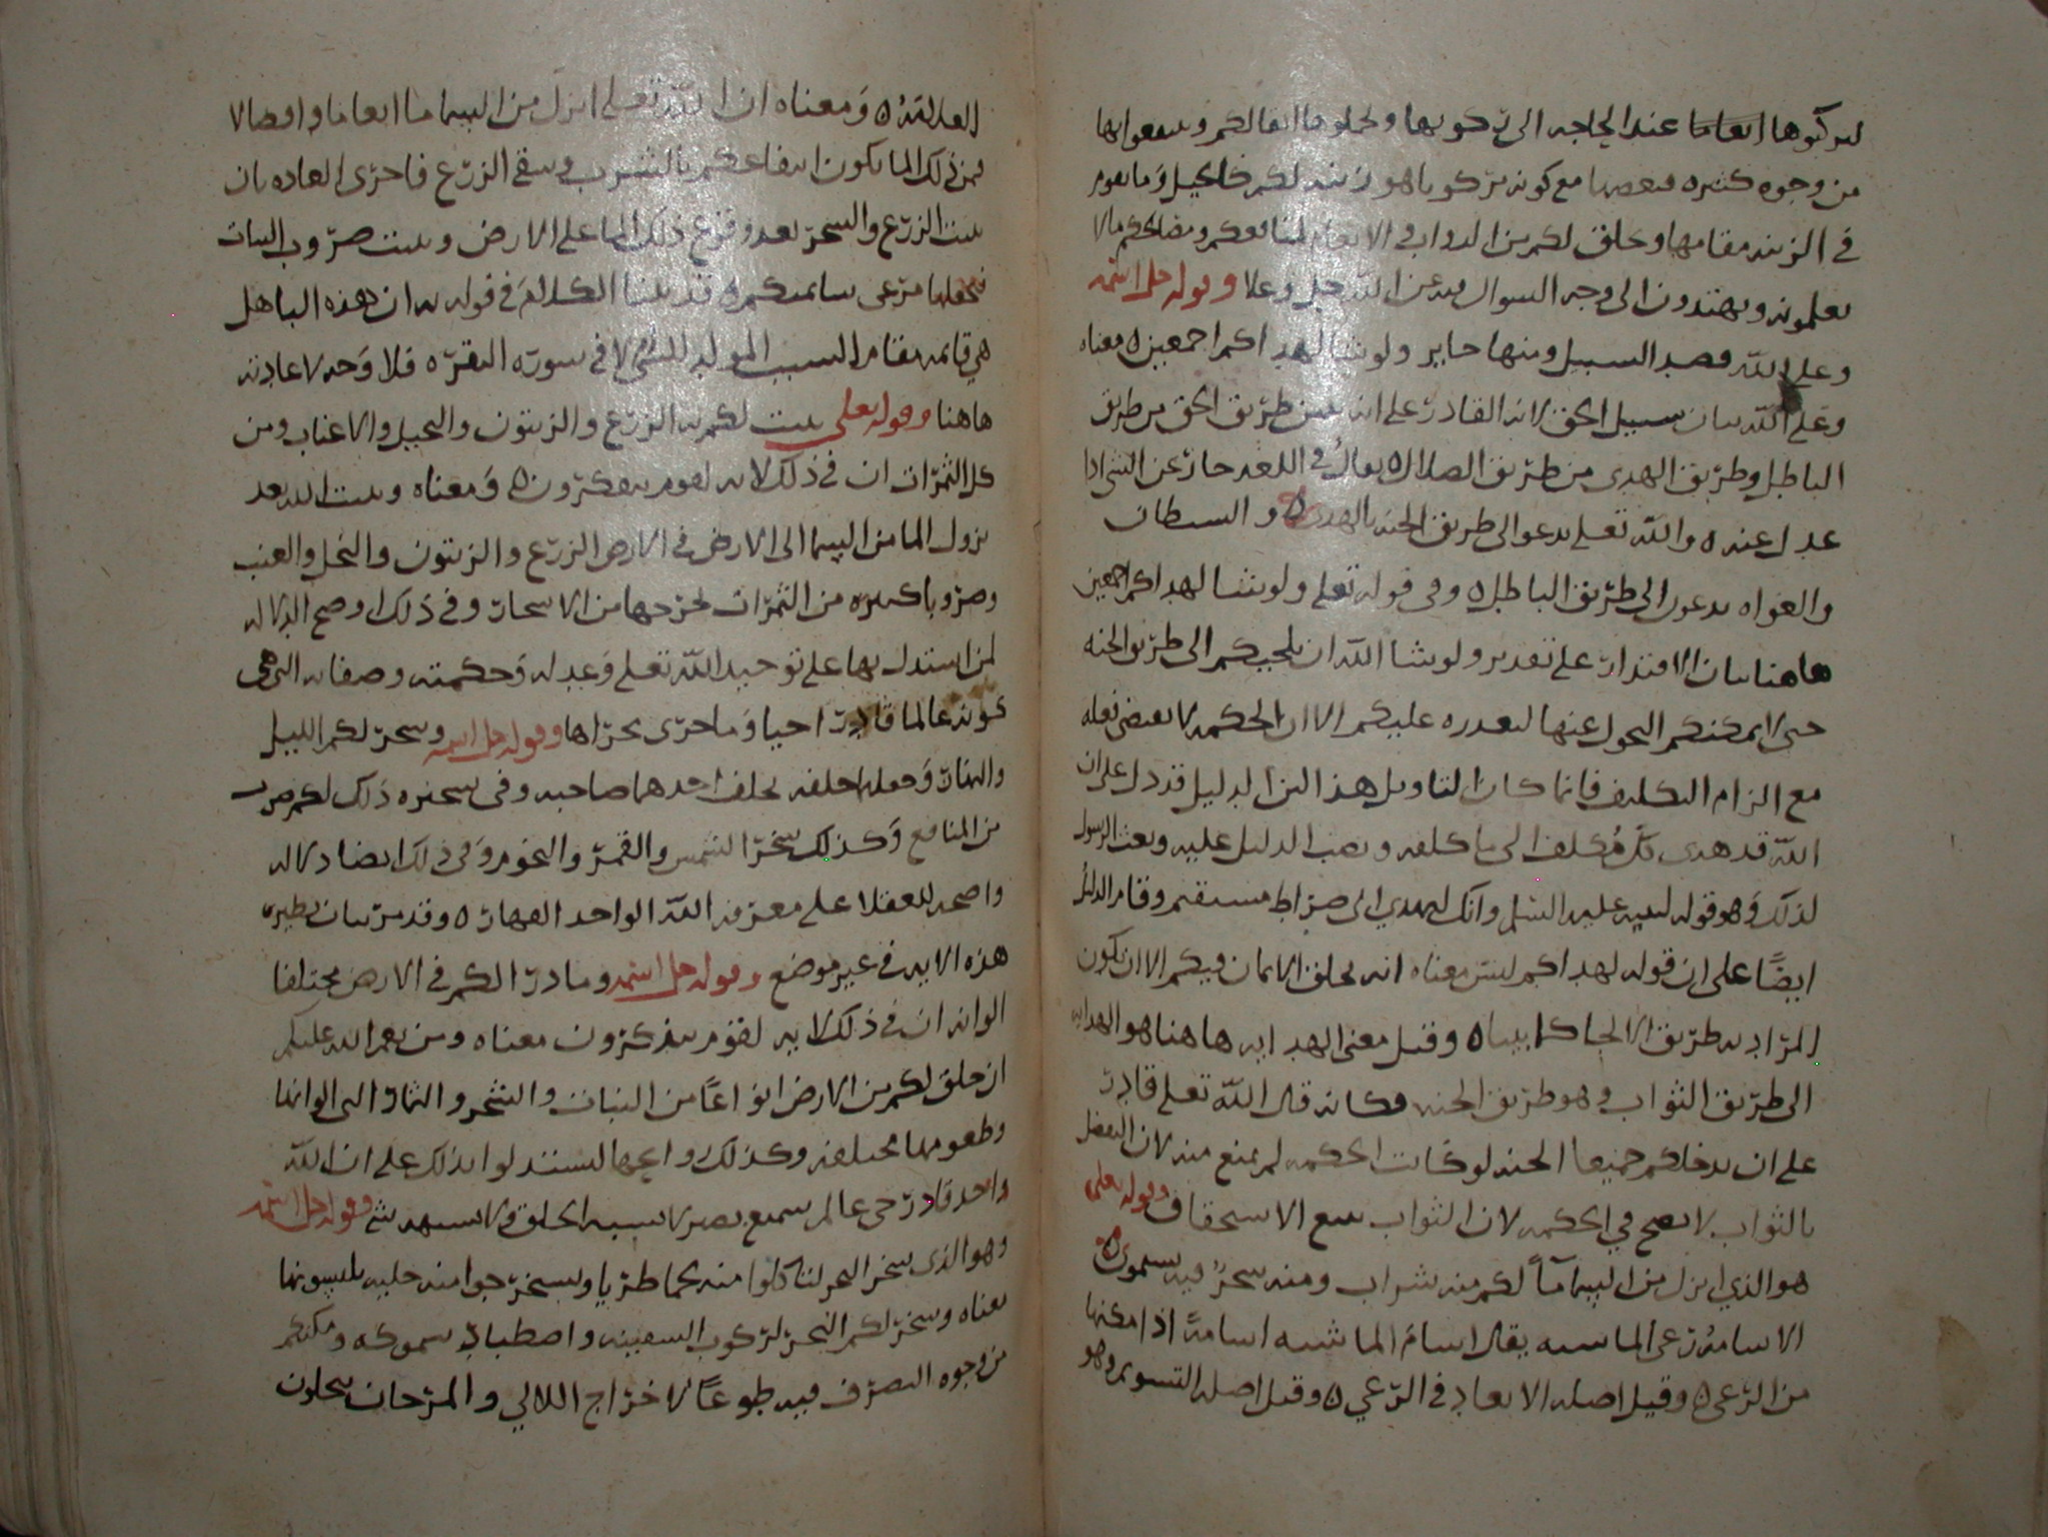 لتركبوها انعاما عند الحاجه الى ركوبها ولحملوها اثقالكم وتنتفعوا بها
من وجوه كثيره فبعضها مع كونه مركوبا هو زينه لكم كالخيل وما يقوم
في الزينه مقامها وخلق لكم من الدواب والانعام لمنافعكم ومصالحكم مالا
تعلمونه ويهتدون الى وجه السوال فيه عن الله جل وعلا وقوله جل اسمه
وعلى الله قصد السبيل ومنها جاير ولو شا لهداكم اجمعين معناه
وعلى الله بيان سبيل الحق لانه القادر على ان يبين طريق الحق من طريق
الباطل وطريق الهدى من طريق الضلال يقال في اللغه جار عن الشي اذا
عدل عنه والله تعلى يدعو الى طريق الجنه بالهدى والشيطان
والغواه يدعون الى طريق الباطل وفي قوله تعلى ولو شا لهداكم اجمعين
هاهنا بيان الاقتدار على تقدير ولو شا الله ان يلجيكم الى طريق الجنه
حتى لا يمكنكم التحول عنها لقدره عليكم الا ان الحكمه لا تقتضي فعله
مع الزام التكليف فانما كان التاويل هذا لان الدليل قد دل على ان
الله قد هدى كل مكلف الى ما كلفه ونصب الدليل عليه وبعث الرسول
لذلك وهو قوله لنبيه عليه السلم وانك لتهدي الى صراط مستقيم وقام الدليل
ايضًا على ان قوله لهداكم ليس معناه انه لخلق الايمان فيكم الا ان يكون
المراد به طريق الالجا كما بيناه وقيل معنى الهدايه هاهنا هو الهدايه
الى طريق الثواب وهو طريق الجنه فكانه قال الله تعلى قادر
على ان يدخلكم جميعا الجنه لو كانت الحكمه لم تمنع منه لان التفضل
بالثواب لا يصح في الحكمه لان الثواب يتبع الاستحقاق وقوله تعلى
هو الذي انزل من السماء ماً لكم منه شراب ومنه شجرٌ فيه تسيمون
الاسامه رعي الماشيه يقال اسام الماشيه اسامةً اذا امكنها
من الرعي وقيل اصله الابعاد في الرعي وقيل اصله التسويم وهو
العلامه ومعناه ان الله تعلى انزل من السما ما انعاما وافضالا
فمن ذلك الما يكون انتفاعكم بالشرب وسقي الزرع فاجرى العاده بان
ينبت الزرع والشجر بعد وقوع ذلك الما على الارض وينبت ضروب النبات
فجعلها مرعى سايمتكم قد بينا الكلام في قوله به ان هذه البا هل
هي قايمه مقام السبب المولد للشي ام لا في سوره البقره فلا وجه لاعادته
هاهنا وقوله تعلى ينبت لكم به الزرع والزيتون والنخيل والاعناب ومن
كل الثمرات ان في ذلك لايه لقوم يتفكرون ومعناه وينبت الله بعد
نزول الما من السما الى الارض في الارض الزرع والزيتون والنخل والعنب
وضروبا كثيره من الثمرات لخرجها من الاشجار وفي ذلك اوضح الدلاله
لمن استدل بها على توحيد الله تعلى وعدله وحكمته وصفاته التي هي
كونه عالما قادرا حيا وما جرى مجراها وقوله جل اسمه وسخر لكم الليل
والنهار وجعلهما خلفه يخلف احدهما صاحبه وفي تسخيره ذلك لكم ضرب
من المنافع وكذلك سخر الشمس والقمر والنجوم وفي ذلك ايضا دلاله
واضحه للعقلا على معرفه الله الواحد القهار وقد مر بيان نظير
هذه الايه في غير موضع وقوله جل اسمه وما ذرا لكم في الارض مختلفا
الوانه ان في ذلك لايه لقوم يذكرون معناه ومن نعم الله عليكم
ان خلق لكم من الارض انواعًا من النبات والشجر والثمار التي الوانها
وطعومها مختلفه وكذلك روايحها لتستدلوا بذلك على ان الله
واحد قادر حي عالم سميع بصير لا يشبه الخلق ولا يشبهه شي وقوله جل اسمه
وهو الذي سخر البحر لتاكلوا منه لحما طريا وتستخرجوا منه حليه تلبسونها
معناه وسخر لكم البحر لركوب السفينه واصطياد سموكه ومكنكم
من وجوه التصرف فيه طوعًا لاخراج اللالي والمرجان تتحلون